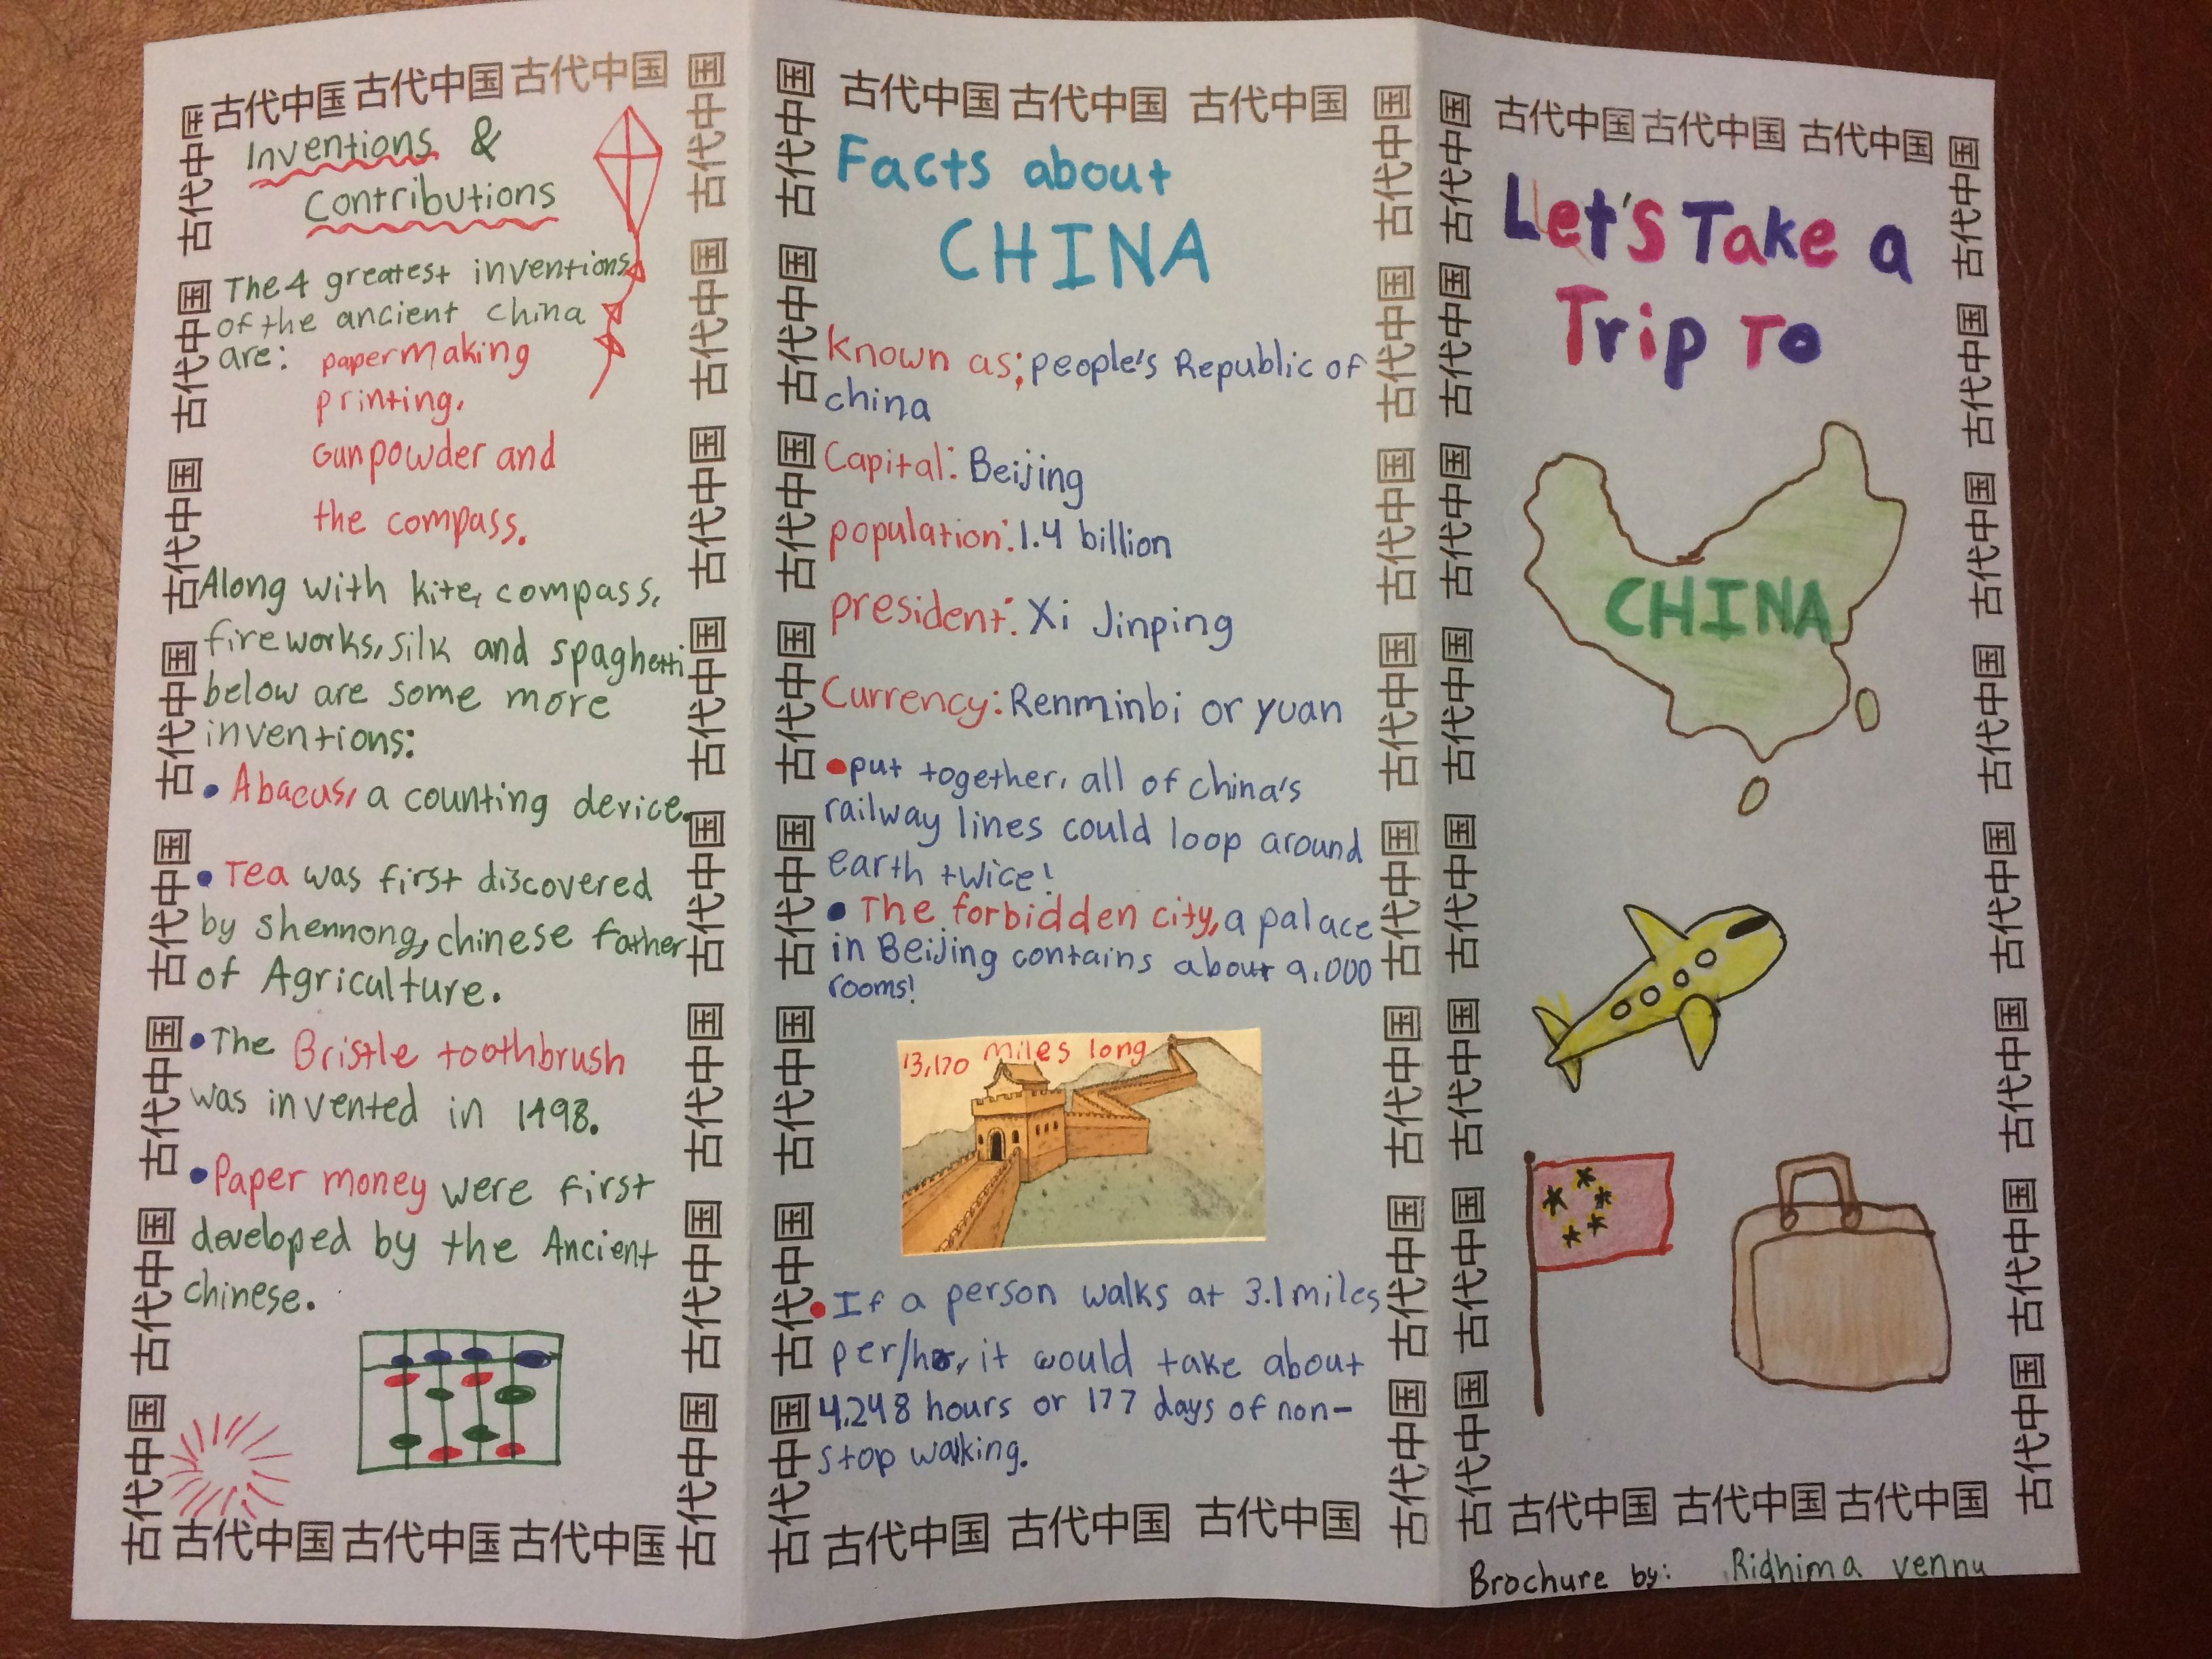 古代中国 古代中国 古代中国
Inventions &
Contributions
The 4 greatest inventions
of the ancient china
are: papermaking
printing.
Gunpowder and
the compass.
Along with kite, compass,
fireworks, silk and spaghetti
below are some more
inventions:
• Abacus, a counting device.
• Tea was first discovered
by shennong, chinese father
of Agriculture.
• The Bristle toothbrush
was invented in 1498.
• Paper money were first
developed by the Ancient
chinese.
古代中国 古代中国 古代中国
古代中国 古代中国 古代中国 古代中国 古代中国 古代中国 古代中国 古代中国
古代中国 古代中国 古代中国 古代中国 古代中国 古代中国 古代中国 古代中国
古代中国 古代中国 古代中国
Facts about
CHINA
Known as; people's Republic of
china
Capital: Beijing
population: 1.4 billion
president: Xi Jinping
Currency: Renminbi or yuan
• put together, all of china's
railway lines could loop around
earth twice!
• The forbidden city, a palace
in Beijing contains about 9.000
rooms!
13,170 miles long
• If a person walks at 3.1 miles
per/hr, it would take about
4,248 hours or 177 days of non-
stop walking.
古代中国 古代中国 古代中国
古代中国 古代中国 古代中国 古代中国 古代中国 古代中国 古代中国 古代中国
古代中国 古代中国 古代中国 古代中国 古代中国 古代中国 古代中国 古代中国
古代中国 古代中国 古代中国
Let's Take a
Trip To
CHINA
古代中国 古代中国 古代中国
古代中国 古代中国 古代中国 古代中国 古代中国 古代中国 古代中国 古代中国
古代中国 古代中国 古代中国 古代中国 古代中国 古代中国 古代中国 古代中国
Brochure by: Ridhima vennu